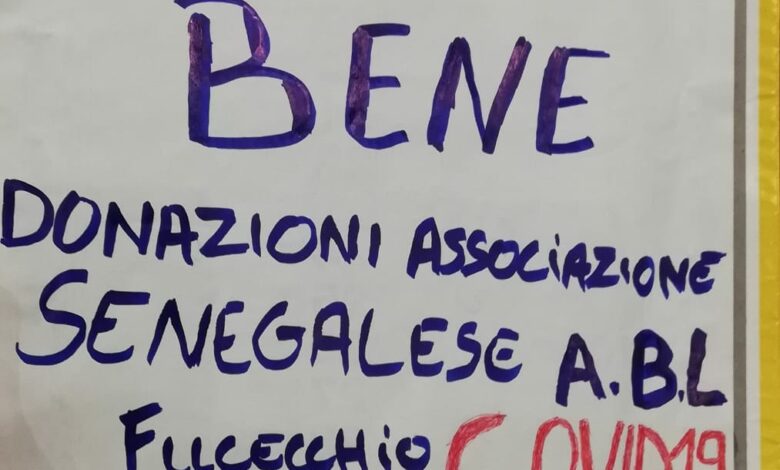 BENE
DONAZIONI ASSOCIAZIONE
SENEGALESE A.B.L
FUCECCHIO COVID19